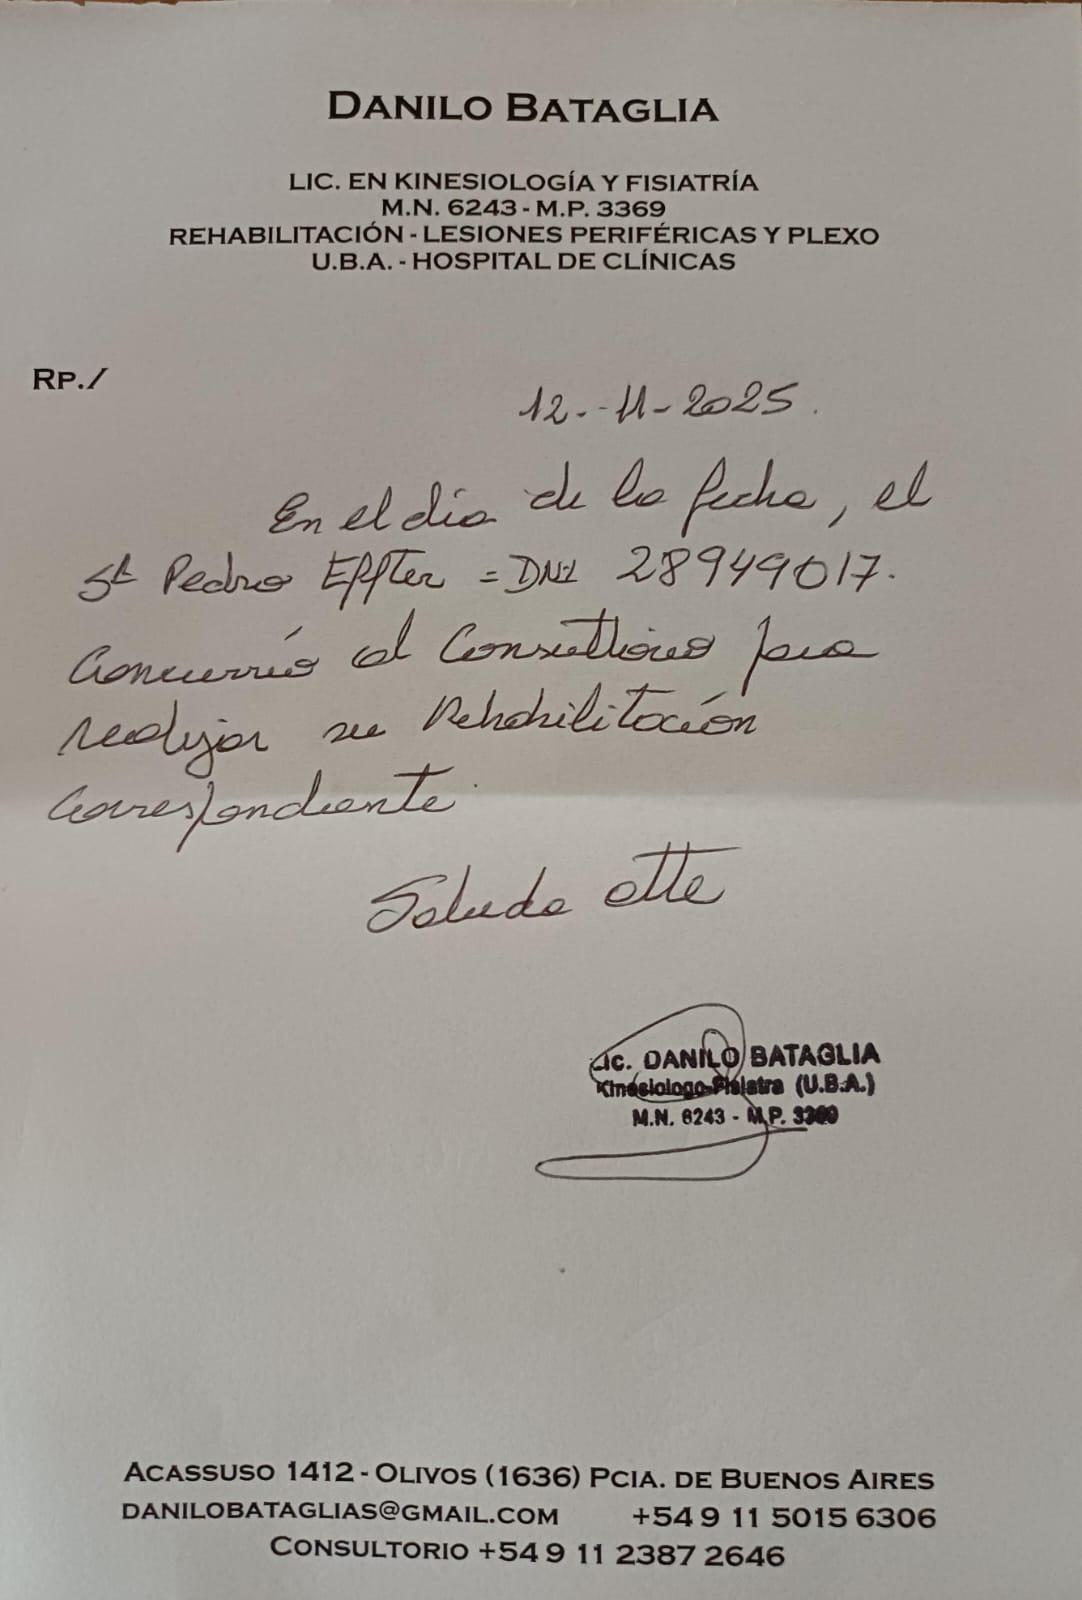 DANILO BATAGLIA
LIC. EN KINESIOLOGÍA Y FISIATRÍA
M.N. 6243 - M.P. 3369
REHABILITACIÓN - LESIONES PERIFÉRICAS Y PLEXO
U.B.A. - HOSPITAL DE CLÍNICAS
RP./
12-11-2025.
En el día de la fecha, el
Sr Pedro Effter = DNI 28949017.
Concurrió al Consultorio para
realizar su Rehabilitación
Correspondiente.
Saluda atte
Lic. DANILO BATAGLIA
Kinésiologo-Fisiatra (U.B.A.)
M.N. 6243 - M.P. 3369
ACASSUSO 1412 - OLIVOS (1636) PCIA. DE BUENOS AIRES
DANILOBATAGLIAS@GMAIL.COM +54 9 11 5015 6306
CONSULTORIO +54 9 11 2387 2646